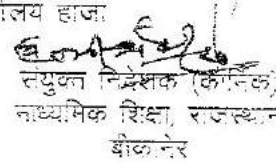 लय हाजा
संयुक्त निदेशक (कार्मिक)
माध्यमिक शिक्षा, राजस्थान
बीकानेर